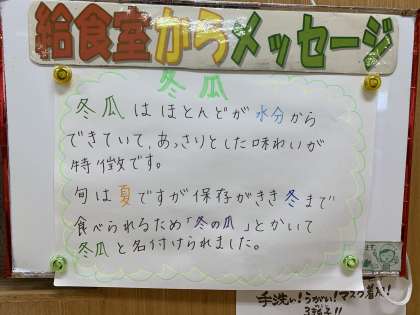 給食室からメッセージ
冬瓜
冬瓜はほとんどが水分から
できていて、あっさりとした味わいが
特徴です。
旬は夏ですが保存がきき冬まで
食べられるため「冬の瓜」とかいて
冬瓜と名付けられました。
手洗い!うがい!マスク着用!